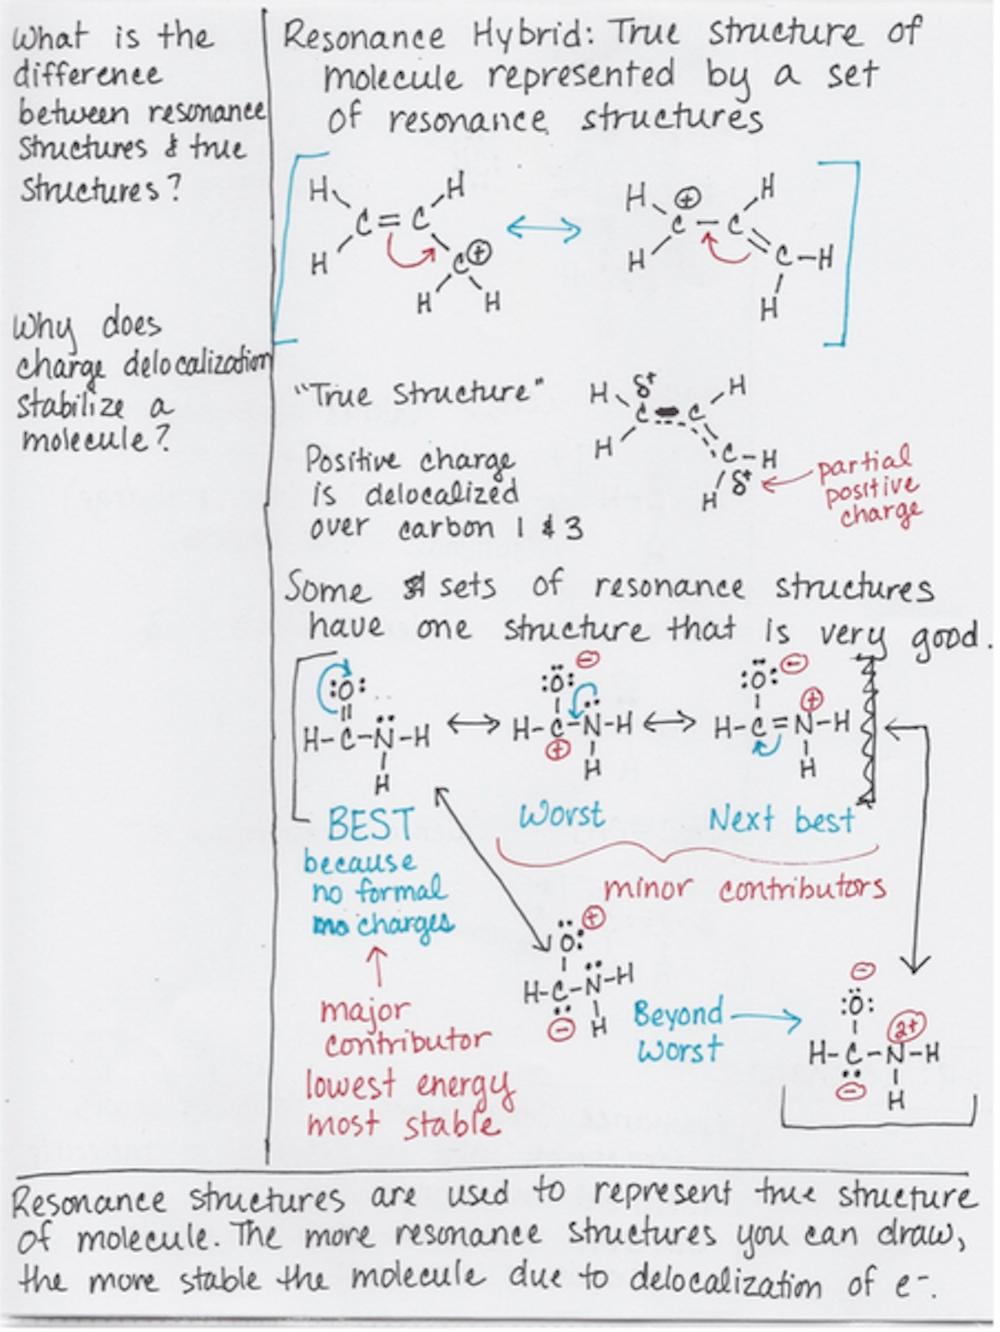 What is the
difference
between resonance
structures & true
structures?
Why does
charge delocalization
stabilize a
molecule?
Resonance Hybrid: True structure of
molecule represented by a set
of resonance structures
H H H ⊕ H
C=C ↔ C-C
H C⊕ H C-H
H H H
"True Structure"
H δ+ H
C C
H C-H
H δ+
partial
positive
charge
Positive charge
is delocalized
over carbon 1 & 3
Some sets of resonance structures
have one structure that is very good.
:O: :Ö: ⊖ :Ö: ⊖
|| | | ⊕
H-C-N̈-H ↔ H-C-N̈-H ↔ H-C=N-H
| ⊕ | |
H H H
BEST Worst Next best
because
no formal
charges
minor contributors
major
contributor
lowest energy
most stable
⊕
:O:
|
H-C̈-N̈-H
⊖ H
Beyond
worst
⊖
:Ö:
| 2+
H-C-N-H
⊖ |
H
Resonance structures are used to represent true structure
of molecule. The more resonance structures you can draw,
the more stable the molecule due to delocalization of e-.